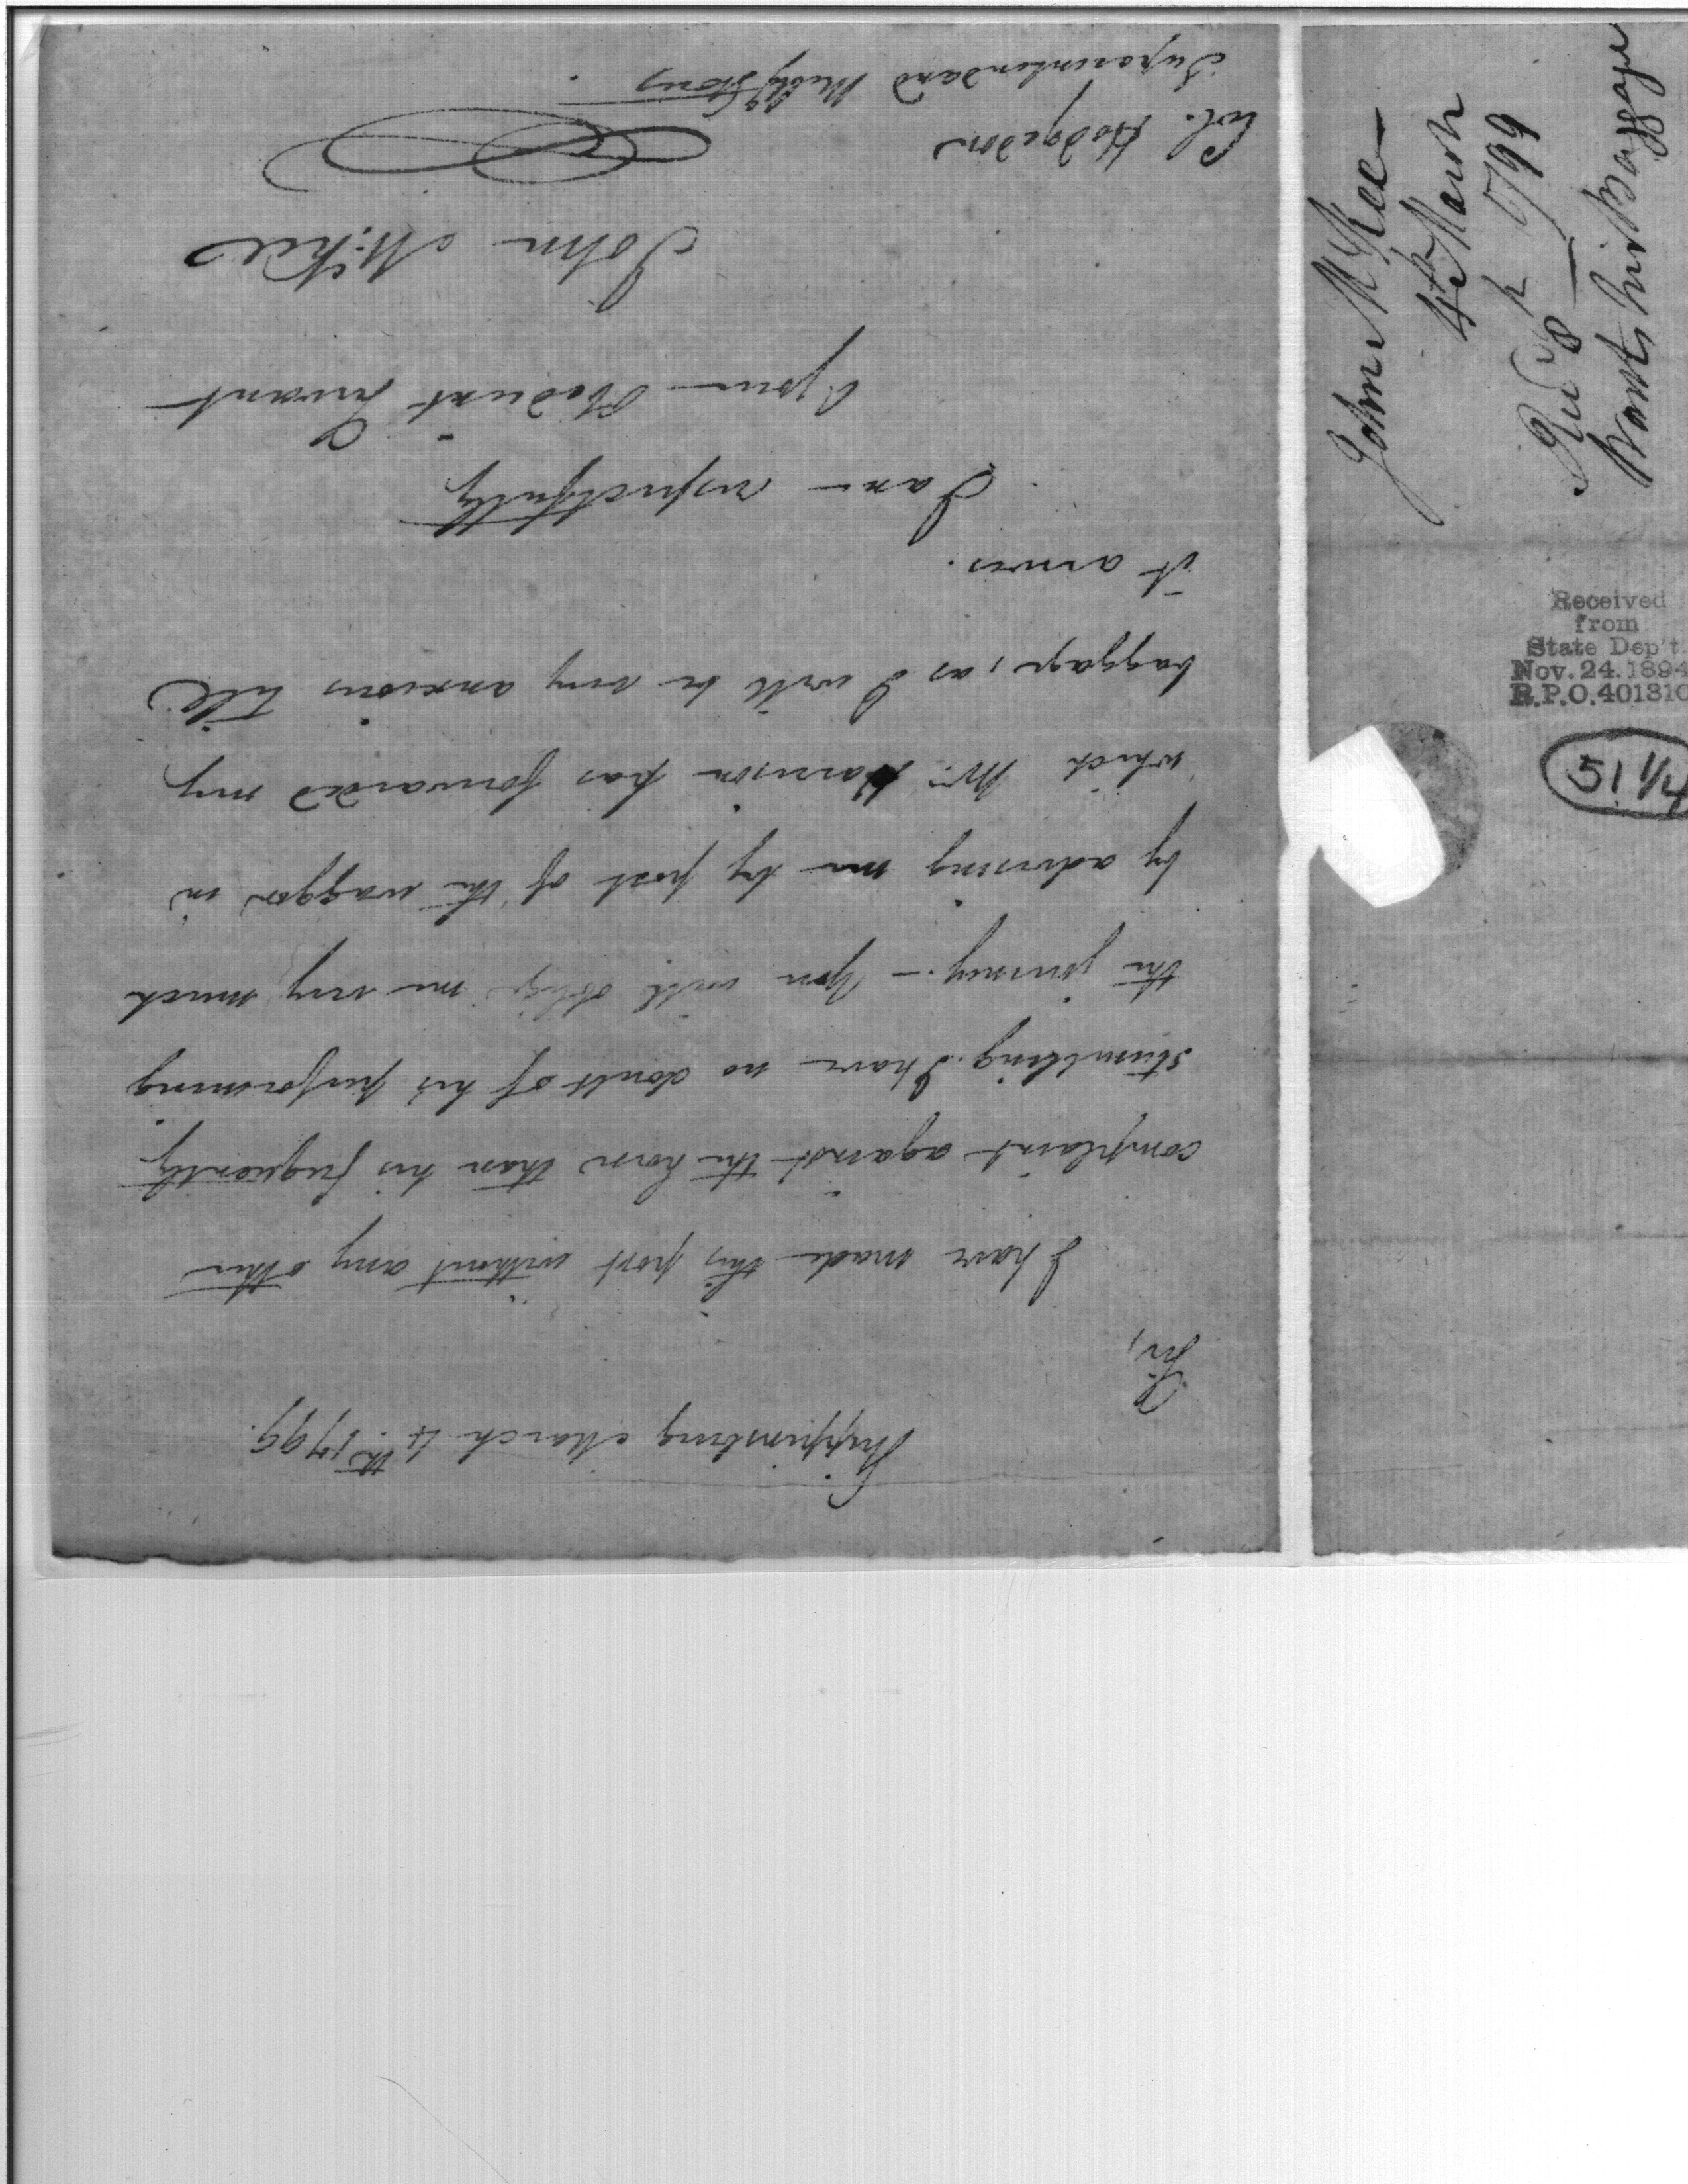 Shippensburg March 4th. 1799.
Sir,
I have made this post without any other
complaint against the horse than his frequently
stumbling. I have no doubt of his performing
the journey. – You will oblige me very much
by advising me by post of the waggon in
which Mr. Harrison has forwarded my
baggage, as I will be very anxious till
it arrives.
I am respectfully
Your Obedient Servant
John McKee
Col. Hodgdon
Superintendand Mility Stores
John McKee
4th March 1799
Recd 8th
Wants his Baggage
Received
from
State Dep't.
Nov. 24. 1894
R.P.O. 401310
51 1/4